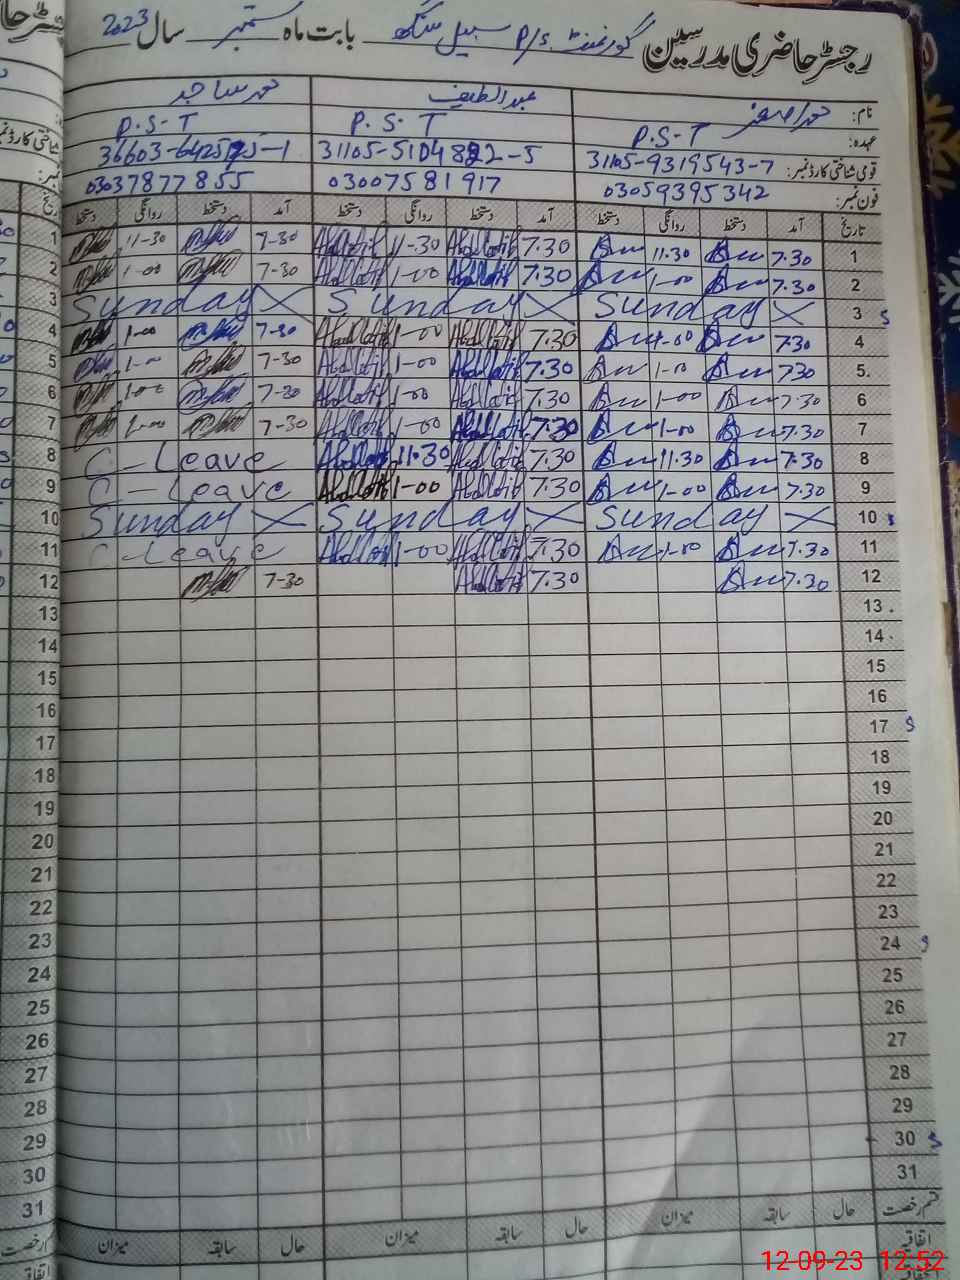 رجسٹر حاضری مدرسین گورنمنٹ P/s سہیل سنگھ بابت ماہ ستمبر سال 2023
نام: محمد اصغر عبدالطیف محمد ساجد
عہدہ: P.S-T P.S T P.S-T
قومی شناختی کارڈ نمبر: 31105-9319543-7 31105-5104822-5
فون نمبر: 03059395342 03007581917 03037877855
تاریخ آمد دستخط روانگی دستخط آمد دستخط روانگی دستخط آمد دستخط روانگی دستخط
1 7.30 11.30 7.30 Abdllatif 11-30 Abdllatif 7-30 11-30 1
2 7.30 1-00 7.30 Abdllatif 1-00 Abdllatif 7-30 1-00 2
3 Sunday X Sunday X Sunday X 3 S
4 7.30 1-00 7.30 Abdllatif 1-00 Abdllatif 7-30 1-00 4
5. 7.30 1-00 7.30 Abdllatif 1-00 Abdllatif 7-30 1-00 5
6 7.30 1-00 7.30 Abdllatif 1-00 Abdllatif 7-30 1-00 6
7 7.30 1-00 7.30 Abdllatif 1-00 Abdllatif 7-30 1-00 7
8 7.30 11.30 7.30 Abdllatif 11.30 Abdllatif C-Leave 8
9 7.30 1-00 7.30 Abdllatif 1-00 Abdllatif C-Leave 9
10 Sunday X Sunday X Sunday X 10 S
11 7.30 1-00 7.30 Abdllatif 1-00 Abdllatif C-Leave 11
12 7.30 7.30 Abdllatif 7-30 12
13 13
14 14
15 15
16 16
17 S 17
18 18
19 19
20 20
21 21
22 22
23 23
24 S 24
25 25
26 26
27 27
28 28
29 29
30 S 30
31 31
قسم رخصت حال سابقہ میزان حال سابقہ میزان حال سابقہ میزان
اتفاقیہ
12-09-23 12:52